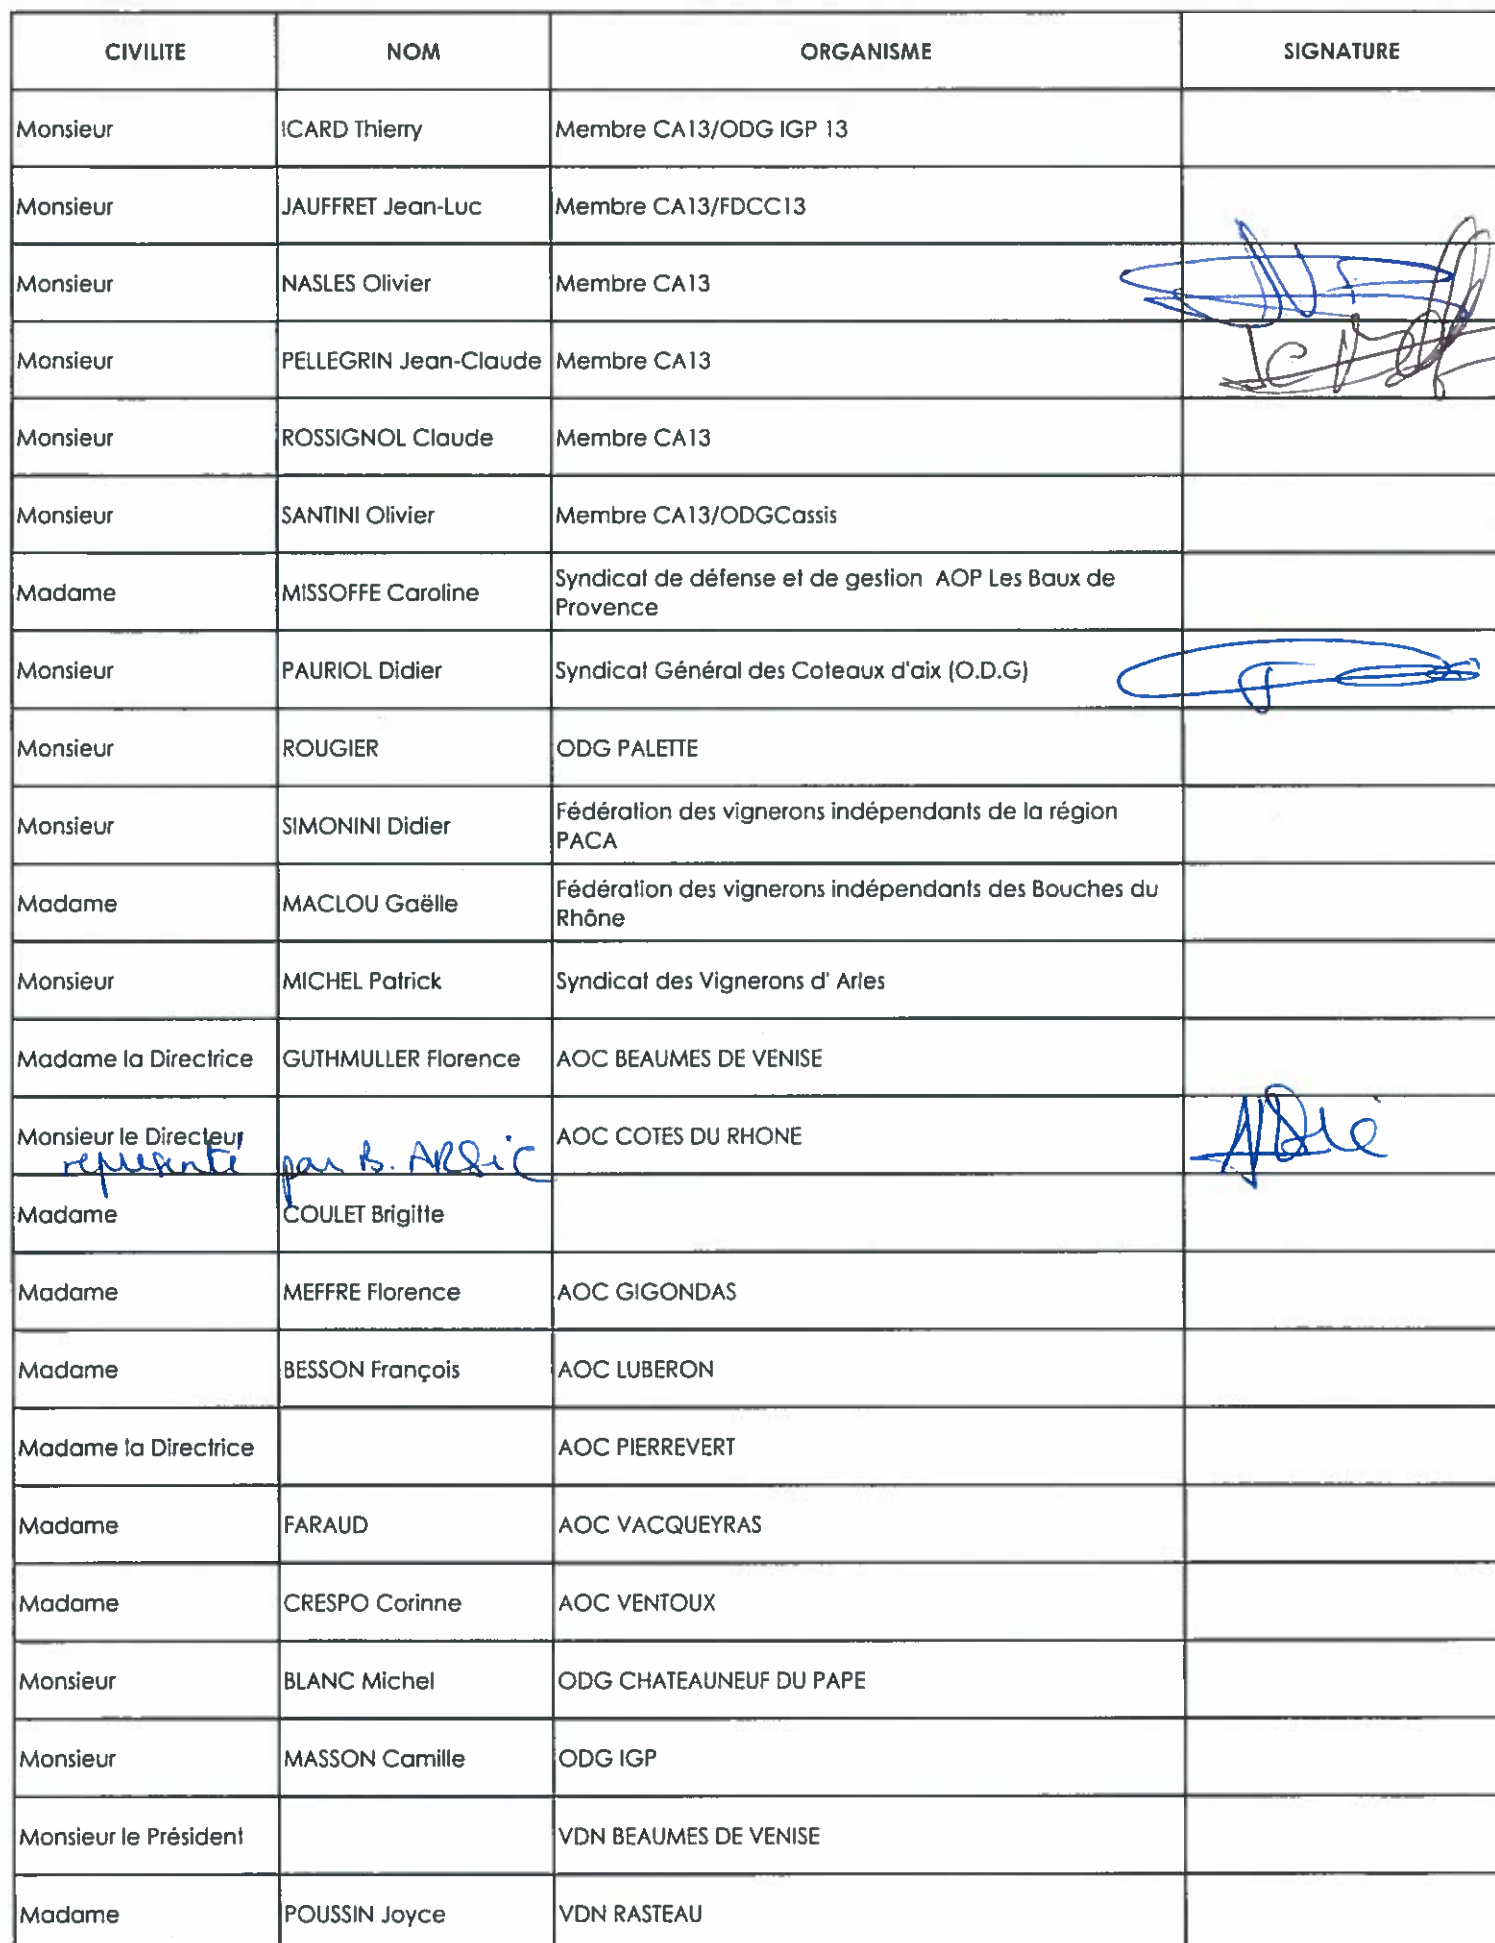 CIVILITE NOM ORGANISME SIGNATURE
Monsieur ICARD Thierry Membre CA13/ODG IGP 13
Monsieur JAUFFRET Jean-Luc Membre CA13/FDCC13
Monsieur NASLES Olivier Membre CA13
Monsieur PELLEGRIN Jean-Claude Membre CA13
Monsieur ROSSIGNOL Claude Membre CA13
Monsieur SANTINI Olivier Membre CA13/ODGCassis
Madame MISSOFFE Caroline Syndicat de défense et de gestion AOP Les Baux de
Provence
Monsieur PAURIOL Didier Syndicat Général des Coteaux d'aix (O.D.G)
Monsieur ROUGIER ODG PALETTE
Monsieur SIMONINI Didier Fédération des vignerons indépendants de la région
PACA
Madame MACLOU Gaëlle Fédération des vignerons indépendants des Bouches du
Rhône
Monsieur MICHEL Patrick Syndicat des Vignerons d' Arles
Madame la Directrice GUTHMULLER Florence AOC BEAUMES DE VENISE
Monsieur le Directeur AOC COTES DU RHONE
représenté par B.
Madame COULET Brigitte
Madame MEFFRE Florence AOC GIGONDAS
Madame BESSON François AOC LUBERON
Madame la Directrice AOC PIERREVERT
Madame FARAUD AOC VACQUEYRAS
Madame CRESPO Corinne AOC VENTOUX
Monsieur BLANC Michel ODG CHATEAUNEUF DU PAPE
Monsieur MASSON Camille ODG IGP
Monsieur le Président VDN BEAUMES DE VENISE
Madame POUSSIN Joyce VDN RASTEAU